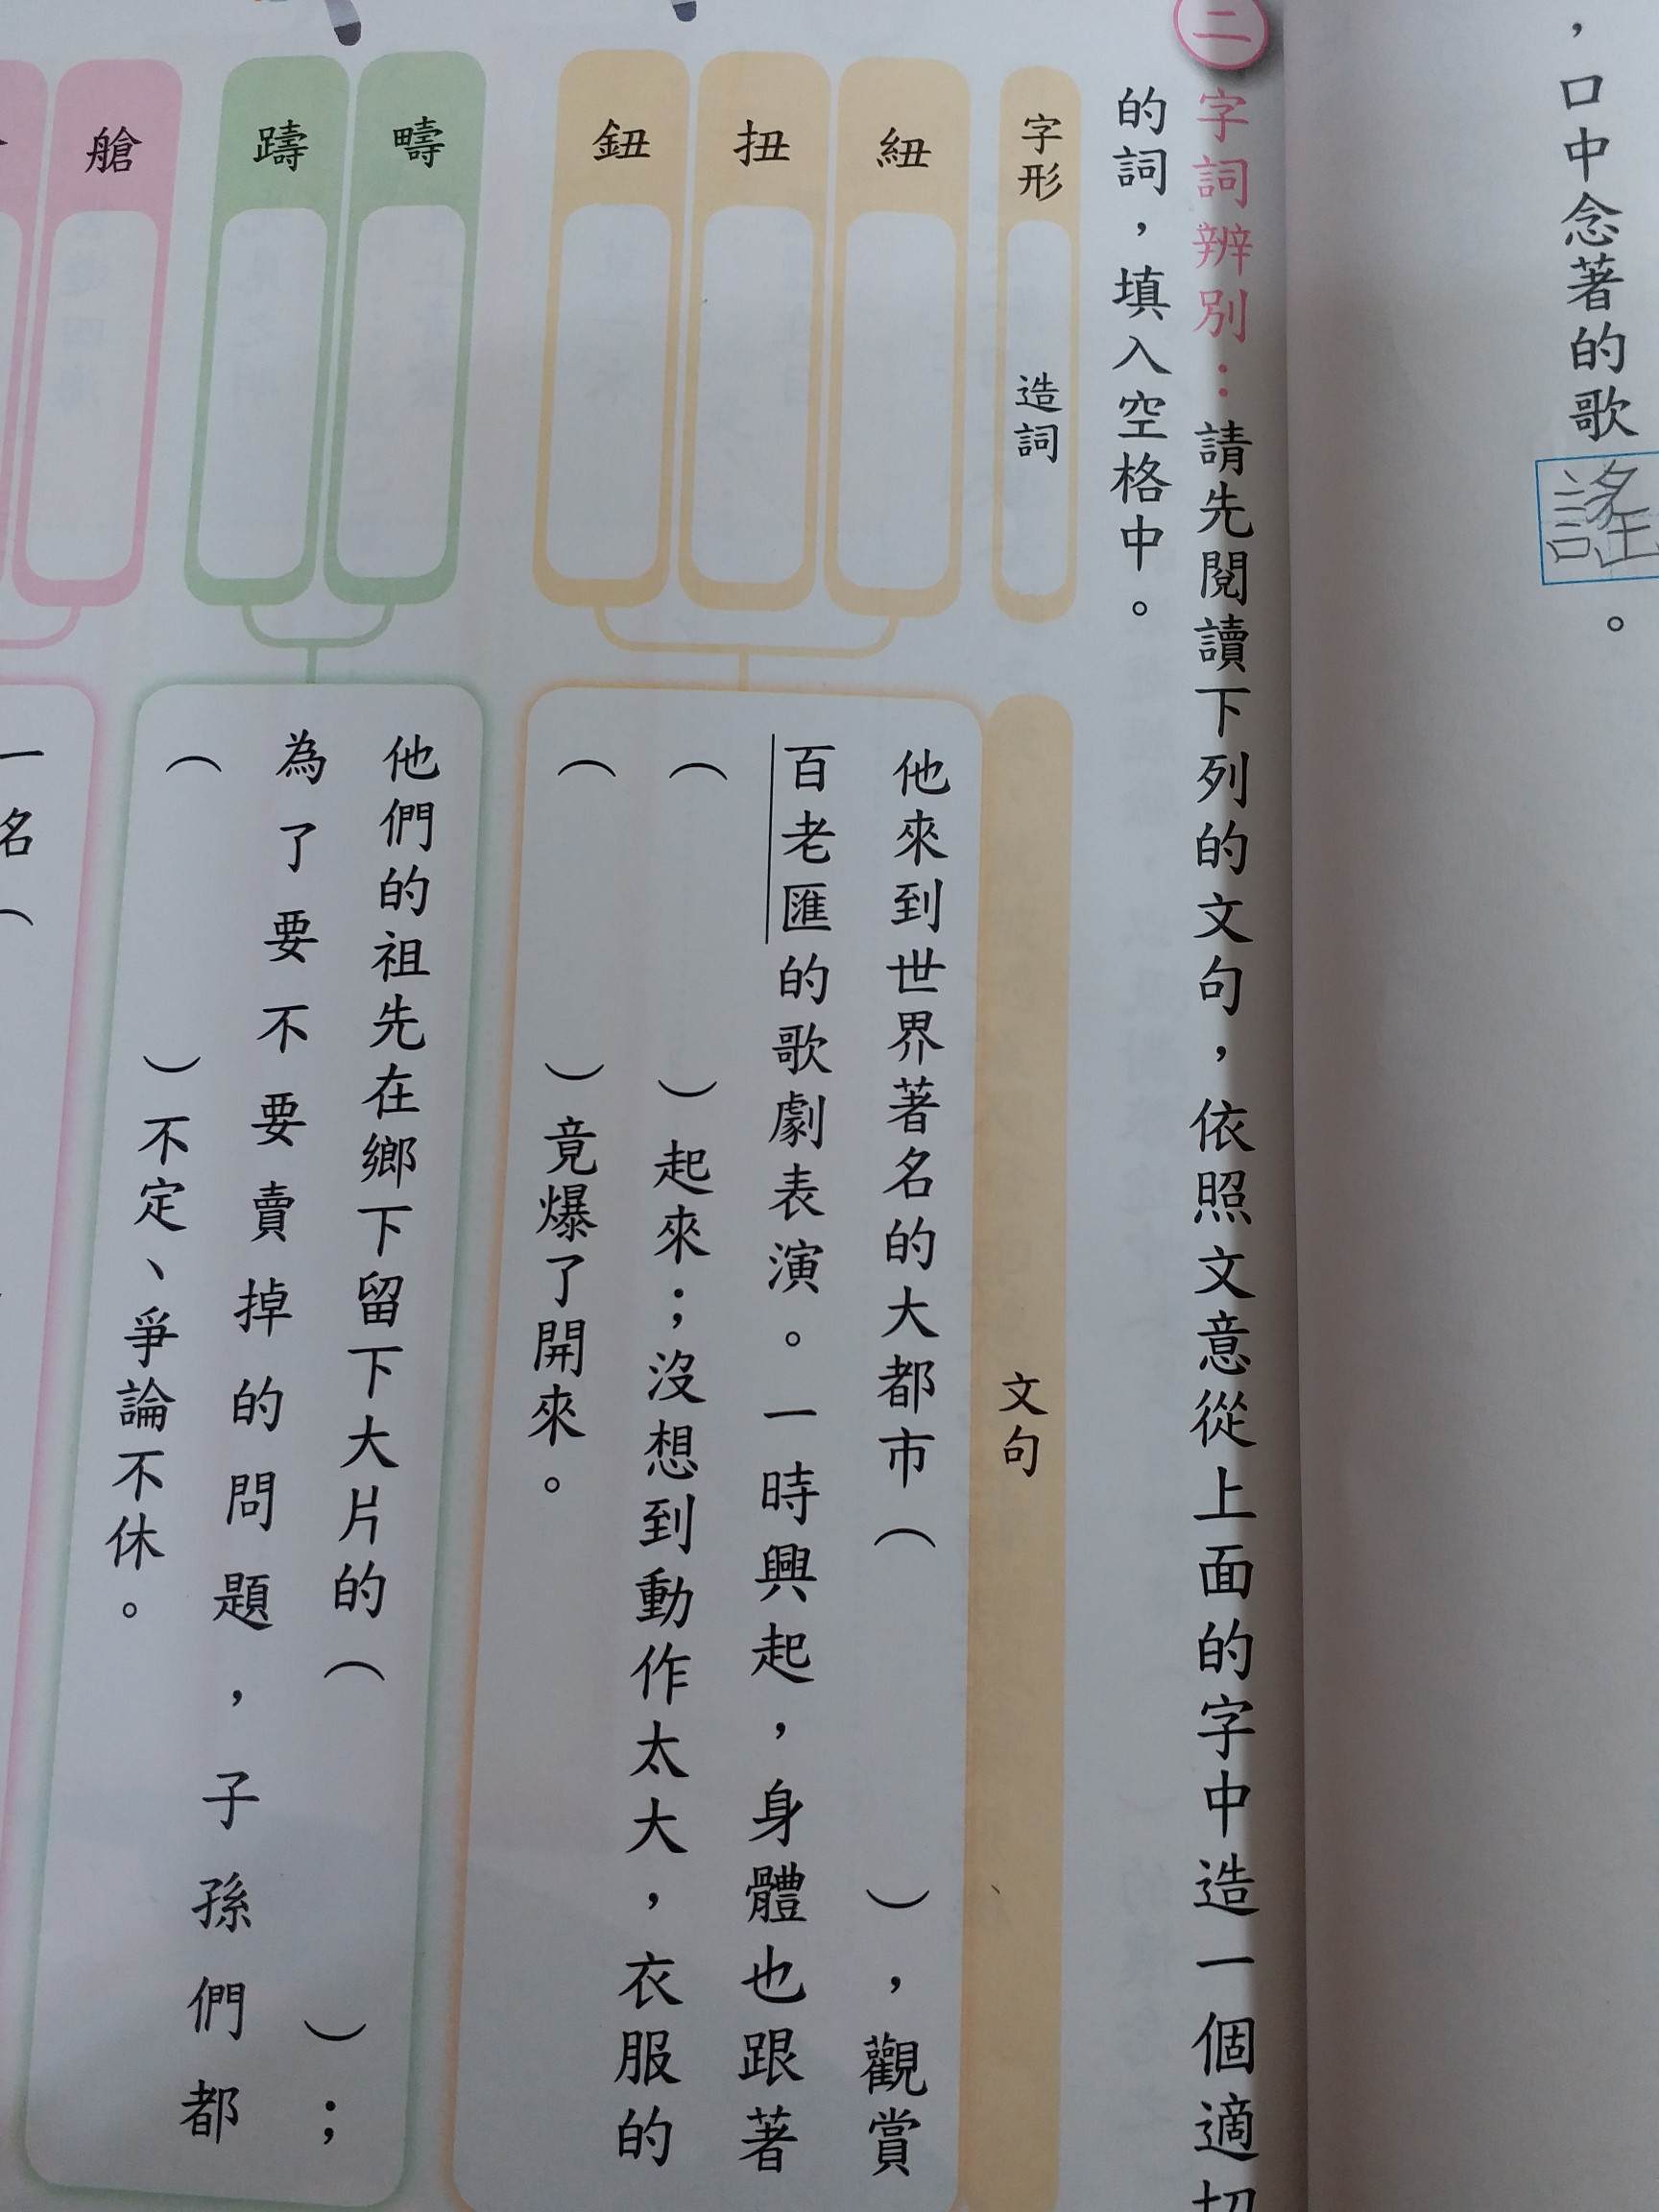 ，口中念著的歌謠。
二
字詞辨別：請先閱讀下列的文句，依照文意從上面的字中造一個適切
的詞，填入空格中。
字形
造詞
文句
紐
扭
鈕
他來到世界著名的大都市（　　　），觀賞
百老匯的歌劇表演。一時興起，身體也跟著
（　　　）起來；沒想到動作太大，衣服的
（　　　）竟爆了開來。
疇
躊
他們的祖先在鄉下留下大片的（　　　）；
為了要不要賣掉的問題，子孫們都
（　　　）不定、爭論不休。
艙
一名（